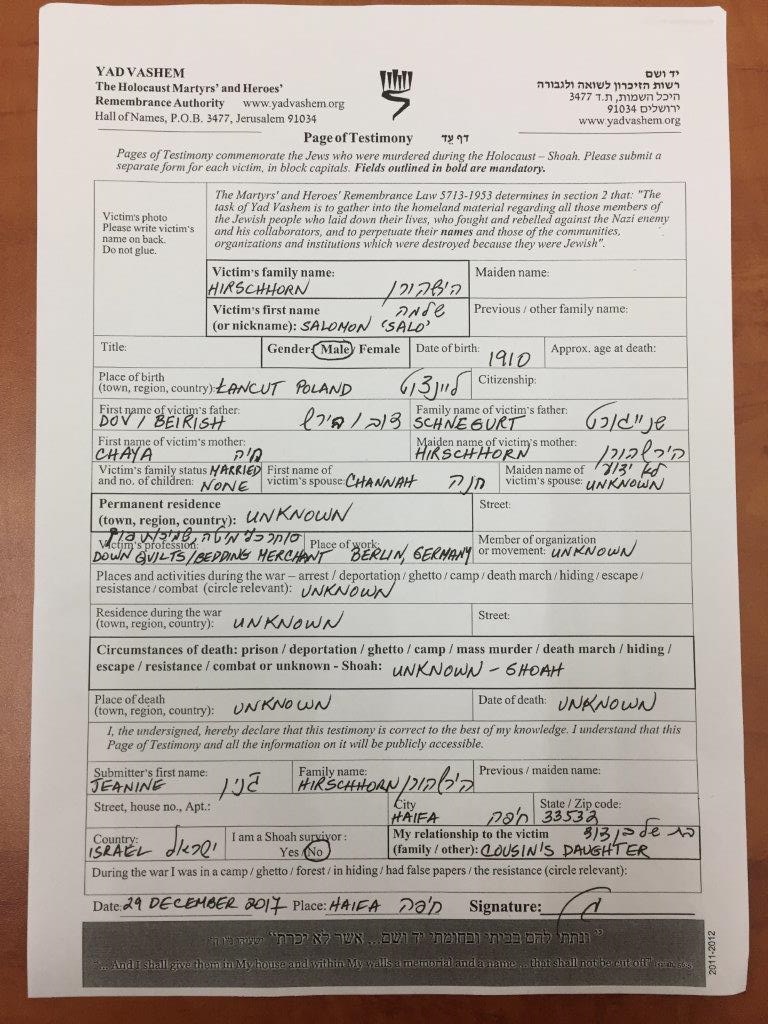 YAD VASHEM
The Holocaust Martyrs' and Heroes'
Remembrance Authority www.yadvashem.org
Hall of Names, P.O.B. 3477, Jerusalem 91034
יד ושם
רשות הזיכרון לשואה ולגבורה
היכל השמות, ת.ד 3477
ירושלים 91034
www.yadvashem.org
Page of Testimony דף עד
Pages of Testimony commemorate the Jews who were murdered during the Holocaust – Shoah. Please submit a
separate form for each victim, in block capitals. Fields outlined in bold are mandatory.
Victim's photo
Please write victim's
name on back.
Do not glue.
The Martyrs' and Heroes' Remembrance Law 5713-1953 determines in section 2 that: "The
task of Yad Vashem is to gather into the homeland material regarding all those members of
the Jewish people who laid down their lives, who fought and rebelled against the Nazi enemy
and his collaborators, and to perpetuate their names and those of the communities,
organizations and institutions which were destroyed because they were Jewish".
Victim's family name:
HIRSCHHORN הירשהורן
Maiden name:
Victim's first name שלמה
(or nickname): SALOMON 'SALO'
Previous / other family name:
Title:
Gender: Male / Female
Date of birth: 1910
Approx. age at death:
Place of birth
(town, region, country): ŁANCUT POLAND
Citizenship:
First name of victim's father:
DOV / BEIRISH דוב / בייריש
Family name of victim's father:
SCHNEGURT
First name of victim's mother:
CHAYA חיה
Maiden name of victim's mother:
HIRSCHHORN הירשהורן
Victim's family status MARRIED
and no. of children: NONE
First name of
victim's spouse: CHANNAH חנה
Maiden name of לא ידוע
victim's spouse: UNKNOWN
Permanent residence
(town, region, country): UNKNOWN
Street:
Victim's profession:
DOWN QUILTS/BEDDING MERCHANT
Place of work: BERLIN, GERMANY
Member of organization
or movement: UNKNOWN
Places and activities during the war – arrest / deportation / ghetto / camp / death march / hiding / escape /
resistance / combat (circle relevant): UNKNOWN
Residence during the war
(town, region, country): UNKNOWN
Street:
Circumstances of death: prison / deportation / ghetto / camp / mass murder / death march / hiding /
escape / resistance / combat or unknown - Shoah: UNKNOWN - SHOAH
Place of death
(town, region, country): UNKNOWN
Date of death: UNKNOWN
I, the undersigned, hereby declare that this testimony is correct to the best of my knowledge. I understand that this
Page of Testimony and all the information on it will be publicly accessible.
Submitter's first name:
JEANINE ג'נין
Family name:
HIRSCHHORN הירשהורן
Previous / maiden name:
Street, house no., Apt.:
City
HAIFA חיפה
State / Zip code:
33532
Country:
ISRAEL ישראל
I am a Shoah survivor :
Yes / No
My relationship to the victim
(family / other): COUSIN'S DAUGHTER
During the war I was in a camp / ghetto / forest / in hiding / had false papers / the resistance (circle relevant):
Date: 29 DECEMBER 2017 Place: HAIFA חיפה Signature:
"ונתתי להם בביתי ובחומתי יד ושם... אשר לא יכרת"
"...And I shall give them in My house and within My walls a memorial and a name... that shall not be cut off"
2011-2012